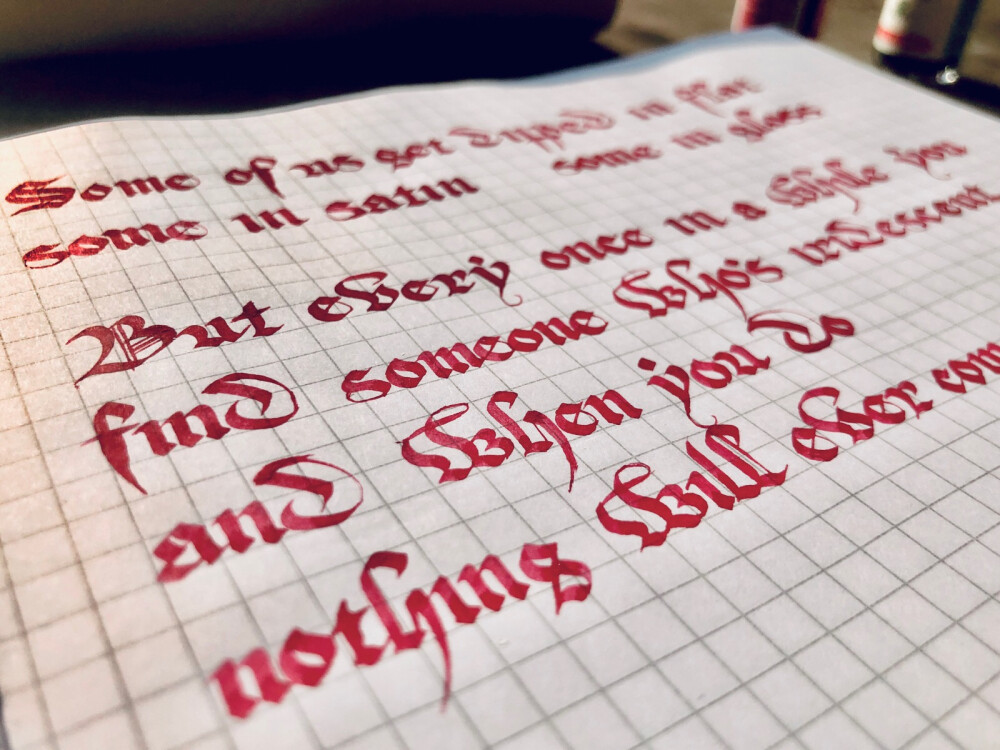 Some of us get dypped in flat
some in satin some in gloss
But every once in a while you
find someone who's iridescent
and when you do
nothing will ever com